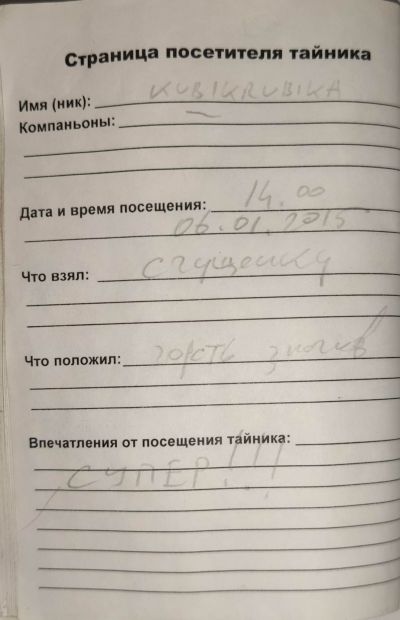 Страница посетителя тайника
Имя (ник): KUBIKRUBIKA
Компаньоны: —
Дата и время посещения: 14.00
06.01.2015
Что взял: сгущенку
Что положил: горсть значков
Впечатления от посещения тайника:
СУПЕР!!!